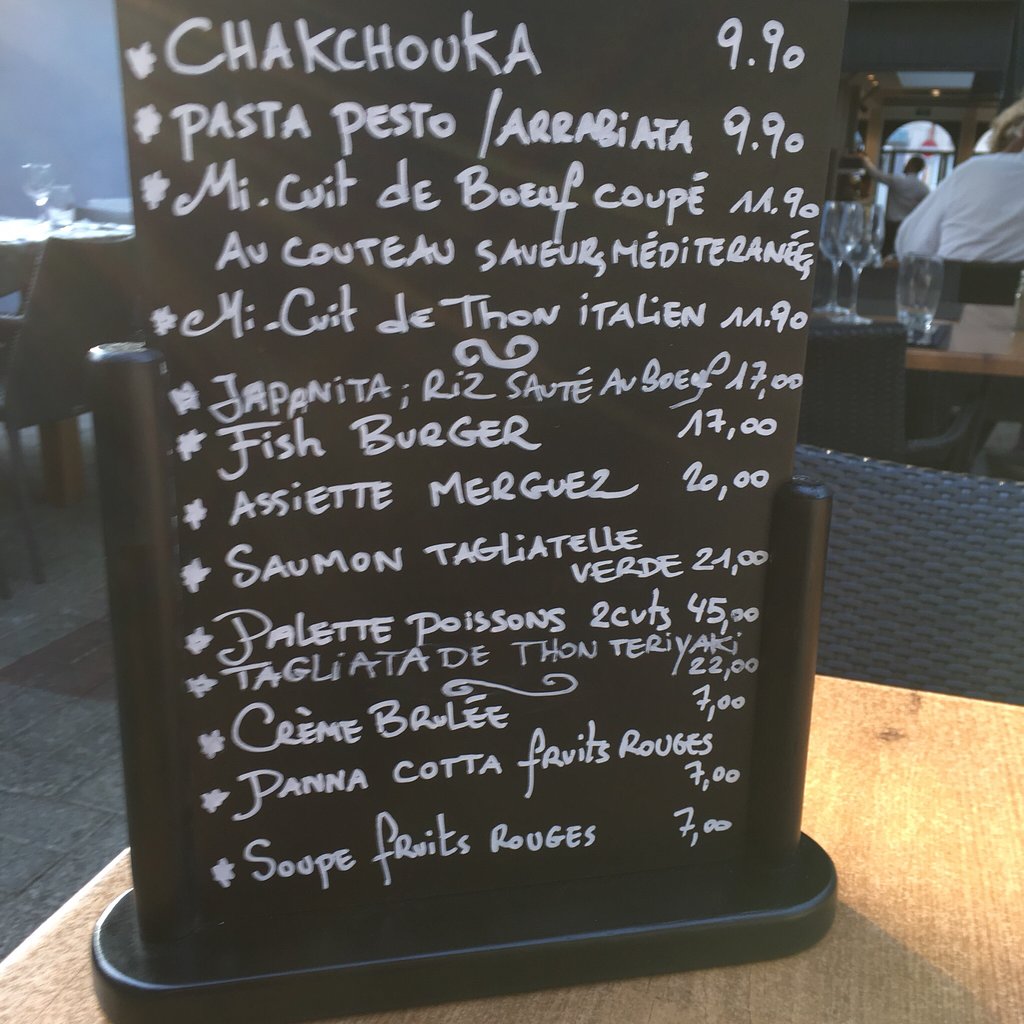 * CHAKCHOUKA 9.90
* PASTA PESTO / ARRABIATA 9.90
* Mi-Cuit de Boeuf coupé 11.90
Au couteau saveurs MÉDITERANÉES
* Mi-Cuit de Thon iTALiEN 11.90
* JAPANITA ; Riz SAUTÉ Au Boeuf 17,00
* Fish BURGER 17,00
* ASSiETTE MERGUEZ 20,00
* SAUMON TAGLiATELLE
VERDE 21,00
* PALETTE Poissons 2cuts 45,00
* TAGLiATA DE THON TERiYAKi
22,00
* CRÈME BRuLÉE 7,00
* PANNA COTTA fruits ROUGES
7,00
* Soupe fruits ROUGES 7,00